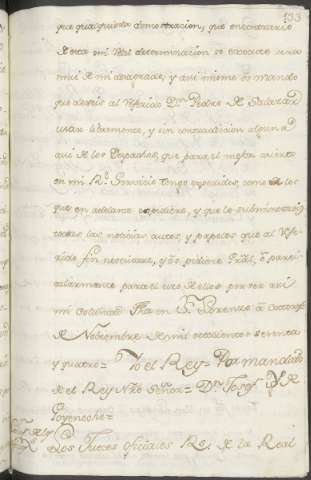 133
que qualquiera demostracion, que en contrario
de esta mi Real determinacion se execute sera
mui de mi desagrado, y assi mismo os mando
que dexeis al referido Dn. Pedro de Salazar
usar libremente, y sin contradicion alguna
aqui de los Despachos, que para el mejor acierto
en mi Rl. Servicio tengo expedidos, como de los
que en adelante expidiere, y que le subministreis
todas las noticias autos y papeles que al refe-
rido fin necesitare, y os pidiere Gral, ò parti-
cularmente para el uso de ellos por ser assi
mi voluntad Fha en Sn. Lorenzo à catorze
de Noviembre de mil setecientos setenta
y quatro= Yo el Rey= Por mandado
de el Rey Nro Señor= Dn. Joseph de
Goyeneche=
A los Jueces oficiales Rs. de la Real